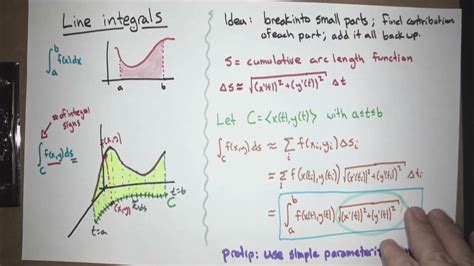 Line integrals
∫_a^b f(x)dx
a b
# of integral signs
∫_C f(x,y)ds =
f(x,y)
(x,y)
ds
t=a
t=b
C
Idea: break into small parts; find contribution
of each part; add it all back up.
s = cumulative arc length function
Δs ≈ √((x'(t))²+(y'(t))²) Δt
Let C = <x(t),y(t)> with a≤t≤b
∫_C f(x,y)ds ≈ Σ_i f(x_i,y_i) Δs_i
≈ Σ_i f(x(t_i),y(t_i)) √((x'(t_i))²+(y'(t_i))²) Δt_i
= ∫_a^b f(x(t),y(t)) √((x'(t))²+(y'(t))²)
protip: use simple